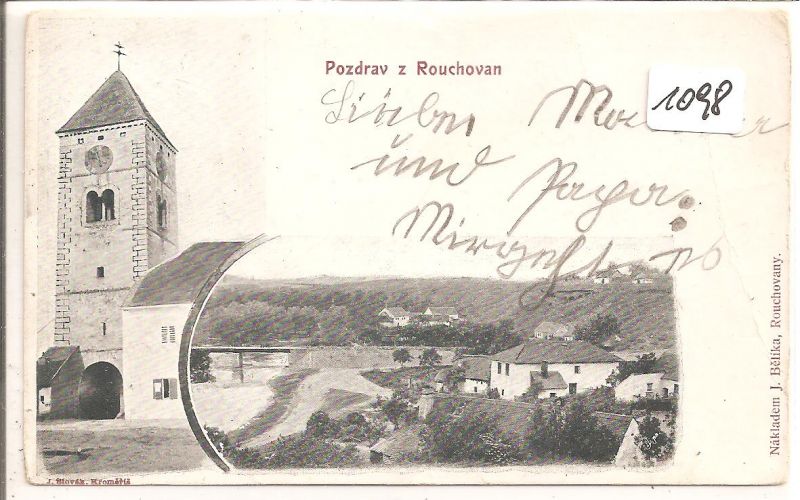 Pozdrav z Rouchovan
1098
Lieber
und Papa.
Mir geht es
Nákladem J. Bělíka, Rouchovany.
J. Slovák, Kroměříž